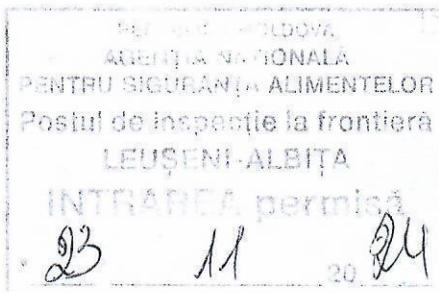 REPUBLICA MOLDOVA
AGENȚIA NAȚIONALĂ
PENTRU SIGURANȚA ALIMENTELOR
Postul de inspecție la frontieră
LEUȘENI-ALBIȚA
INTRAREA permisă
23 11 20 24